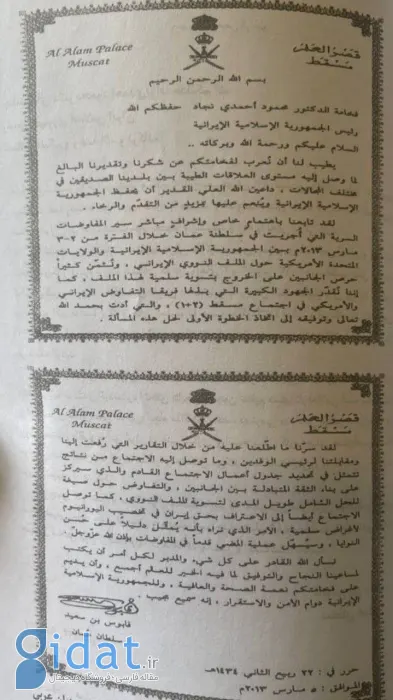 Al Alam Palace
Muscat
قصر العلم
مسقط
بسم الله الرحمن الرحيم
فخامة الدكتور محمود أحمدي نجاد حفظكم الله
رئيس الجمهورية الإسلامية الإيرانية
السلام عليكم ورحمة الله وبركاته ..
يطيب لنا أن نعرب لفخامتكم عن شكرنا وتقديرنا البالغ
لما وصل إليه مستوى العلاقات الطيبة بين بلدينا الصديقين في
مختلف المجالات ، داعين الله العلي القدير أن يحفظ الجمهورية
الإسلامية الإيرانية وينعم عليها بمزيد من التقدم والرخاء .
لقد تابعنا باهتمام خاص وإشراف مباشر سير المفاوضات
السرية التي أجريت في سلطنة عمان خلال الفترة من ٢-٣
مارس ٢٠١٣م بين الجمهورية الإسلامية الإيرانية والولايات
المتحدة الأمريكية حول الملف النووي الإيراني ، ونثمن كثيراً
حرص الجانبين على الخروج بتسوية سلمية لهذا الملف ، كما
إننا نقدر الجهود الكبيرة التي بذلها فريقا التفاوض الإيراني
والأمريكي في اجتماع مسقط (٢+١) ، والتي أدت بحمد الله
تعالى وتوفيقه إلى اتخاذ الخطوة الأولى لحل هذه المسألة .
Al Alam Palace
Muscat
قصر العلم
مسقط
لقد سرنا ما اطلعنا عليه من خلال التقارير التي رفعت إلينا
ومقابلتنا لرئيسي الوفدين ، وما توصل إليه الاجتماع من نتائج
تتمثل في تحديد جدول أعمال الاجتماع القادم والذي سيركز
على بناء الثقة المتبادلة بين الجانبين ، والتفاوض حول صيغة
للحل الشامل طويل المدى لتسوية الملف النووي ، كما توصل
الاجتماع أيضاً إلى الاعتراف بحق إيران في تخصيب اليورانيوم
لأغراض سلمية ، الأمر الذي نراه بأنه يمثل دليلاً على حسن
النوايا ، وسيسهل عملية المضي قدماً في المفاوضات بإذن الله عز وجل .
نسأل الله القادر على كل شيء والمدبر لكل أمر أن يكتب
لمساعينا النجاح والتوفيق لما فيه الخير للعالم أجمع ، وأن يديم
على فخامتكم نعمة الصحة والعافية ، وللجمهورية الإسلامية
الإيرانية دوام الأمن والاستقرار ، إنه سميع مجيب .
قابوس بن سعيد
سلطان عمان
حرر في : ٢٢ ربيع الثاني ١٤٣٤هـ
الموافق : ٥ مارس ٢٠١٣م
gidat.ir
مقاله فارسی